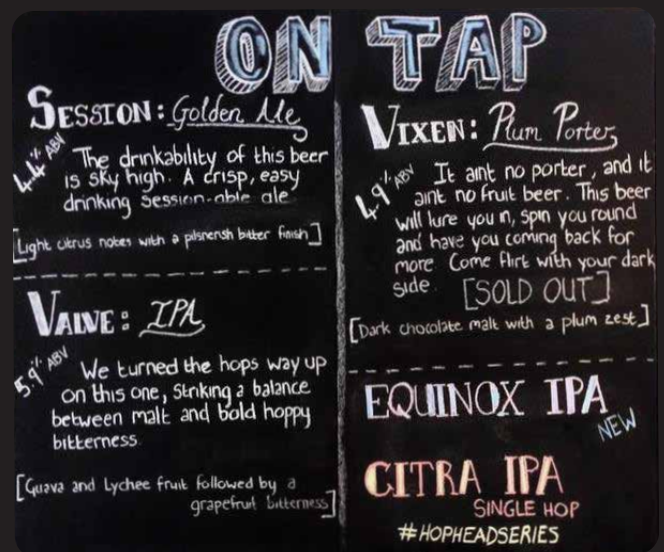 ON TAP
SESSION: Golden Ale
4.4% ABV
The drinkability of this beer
is sky high. A crisp, easy
drinking session-able ale
[Light citrus notes with a pilsnersh bitter finish]
VALVE: IPA
5.9% ABV
We turned the hops way up
on this one, striking a balance
between malt and bold hoppy
bitterness
[Guava and Lychee fruit followed by a
grapefruit bitterness]
VIXEN: Plum Porter
4.9% ABV
It aint no porter, and it
aint no fruit beer. This beer
will lure you in, spin you round
and have you coming back for
more Come flirt with your dark
side. [SOLD OUT]
[Dark chocolate malt with a plum zest]
EQUINOX IPA
NEW
CITRA IPA
SINGLE HOP
#HOPHEADSERIES